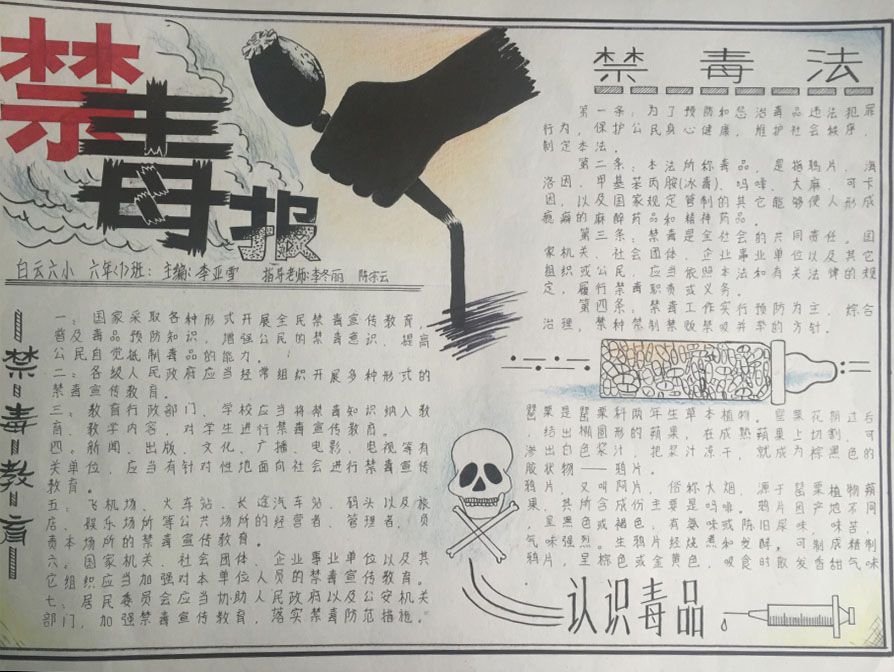 禁毒报
白云六小 六年(1)班: 主编:李亚雪 指导老师:李冬丽 陈宗云
禁毒教育
一: 国家采取各种形式开展全民禁毒宣传教育,
普及毒品预防知识, 增强公民的禁毒意识, 提高
公民自觉抵制毒品的能力。
二:各级人民政府应当经常组织开展多种形式的
禁毒宣传教育。
三: 教育行政部门、学校应当将禁毒知识纳入教
育、教学内容, 对学生进行禁毒宣传教育。
四:新闻、出版、文化、广播、电影、电视等有
关单位, 应当有针对性地面向社会进行禁毒宣传
教育。
五:飞机场、火车站、长途汽车站、码头以及旅
店、娱乐场所等公共场所的经营者、管理者, 负
责本场所的禁毒宣传教育。
六:国家机关、社会团体、企业事业单位以及其
它组织应当加强对本单位人员的禁毒宣传教育。
七:居民委员会应当协助人民政府以及公安机关
部门, 加强禁毒宣传教育, 落实禁毒防范措施。
禁毒法
第一条:为了预防和惩治毒品违法犯罪
行为, 保护公民身心健康, 维护社会秩序,
制定本法。
第二条:本法所称毒品, 是指鸦片、海
洛因、甲基苯丙胺(冰毒)、吗啡、大麻、可卡
因, 以及国家规定管制的其它能够使人形成
瘾癖的麻醉药品和精神药品。
第三条:禁毒是全社会的共同责任。国
家机关、社会团体、企业事业单位以及其它
组织或公民, 应当依照本法和有关法律的规
定, 履行禁毒职责或义务。
第四条:禁毒工作实行预防为主, 综合
治理, 禁种禁制禁贩禁吸并举的方针。
罂粟是罂粟科两年生草本植物。罂粟花期过后
, 结出椭圆形的蒴果, 在成熟蒴果上切割, 可
渗出白色浆汁, 把浆汁凉干, 就成为棕黑色的
胶状物——鸦片。
鸦片, 又叫阿片, 俗称大烟, 源于罂粟植物蒴
果, 其所含成份主要是吗啡。鸦片因产地不同
, 呈黑色或褐色, 有氨味或陈旧尿味, 味苦,
气味强烈。生鸦片经烧煮和发酵, 可制成精制
鸦片, 呈棕色或金黄色, 吸食时散发香甜气味
认识毒品